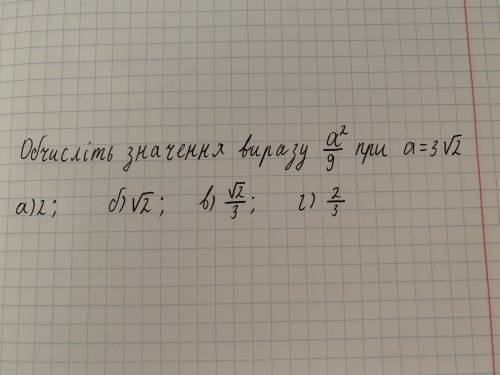 Обчисліть значення виразу a²/9 при a=3√2
а) 2; б) √2; в) √2/3; г) 2/3